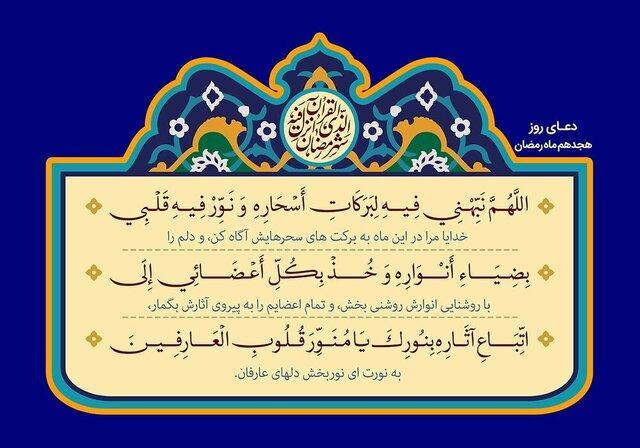 شهر رمضان الذی انزل فیه القرآن
دعـای روز
هجدهم ماه رمضان
اللَّهُمَّ نَبِّهْنِي فِيهِ لِبَرَكَاتِ أَسْحَارِهِ وَ نَوِّرْ فِيهِ قَلْبِي
خدایا مرا در این ماه به برکت های سحرهایش آگاه کن، و دلم را
بِضِيَاءِ أَنْوَارِهِ وَ خُذْ بِكُلِّ أَعْضَائِي إِلَى
با روشنایی انوارش روشنی بخش، و تمام اعضایم را به پیروی آثارش بگمار،
اتِّبَاعِ آثَارِهِ بِنُورِكَ يَا مُنَوِّرَ قُلُوبِ الْعَارِفِينَ
به نورت ای نوربخش دلهای عارفان.